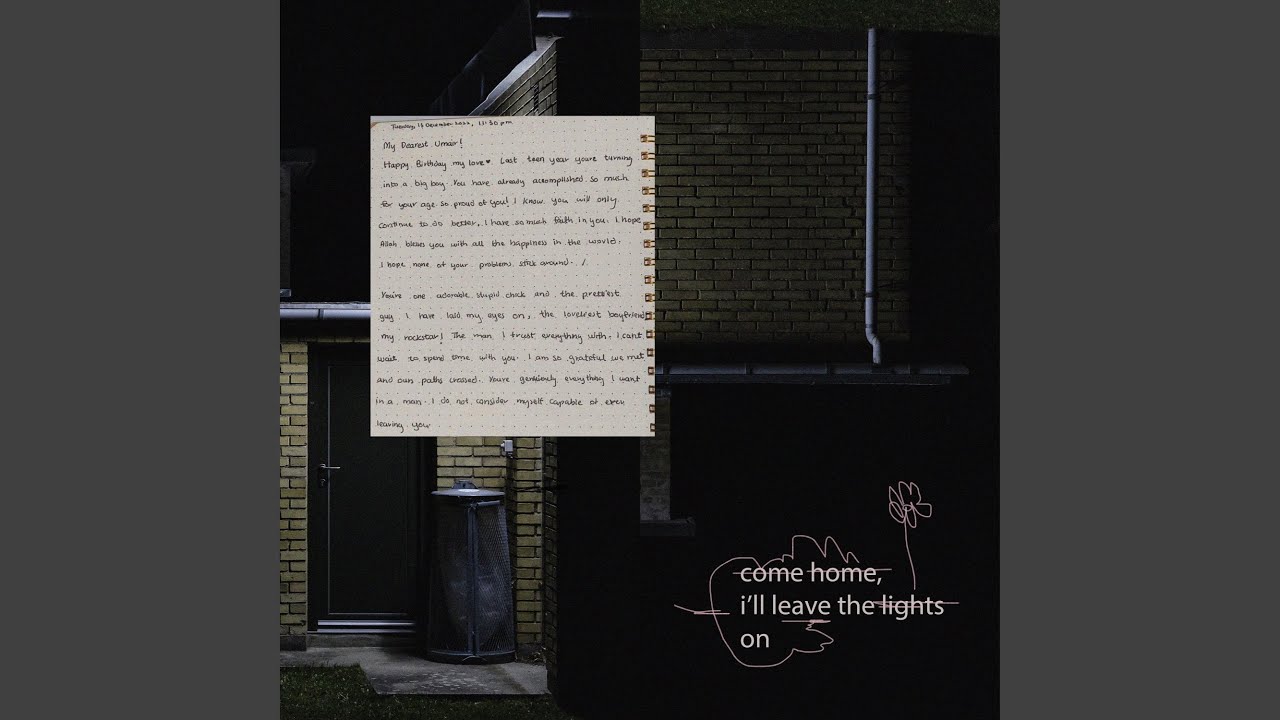 Tuesday, 13 December 2022, 11:30 pm
My Dearest Umair!
Happy Birthday my love♥ Last teen year youre turning
into a big boy. You have already accomplished so much
for your age so proud of you! I know you will only
continue to do better. I have so much faith in you. I hope
Allah blesses you with all the happiness in the world.
I hope none of your problems stick around. /
You're one adorable stupid chick and the prettiest
guy I have laid my eyes on, the loveliest boyfriend,
my rockstar! The man I trust everything with. I cant
wait to spend time with you. I am so grateful we met
and our paths crossed. Youre genuinely everything I want
in a man. I do not consider myself capable of ever
leaving you
come home,
i'll leave the lights
on